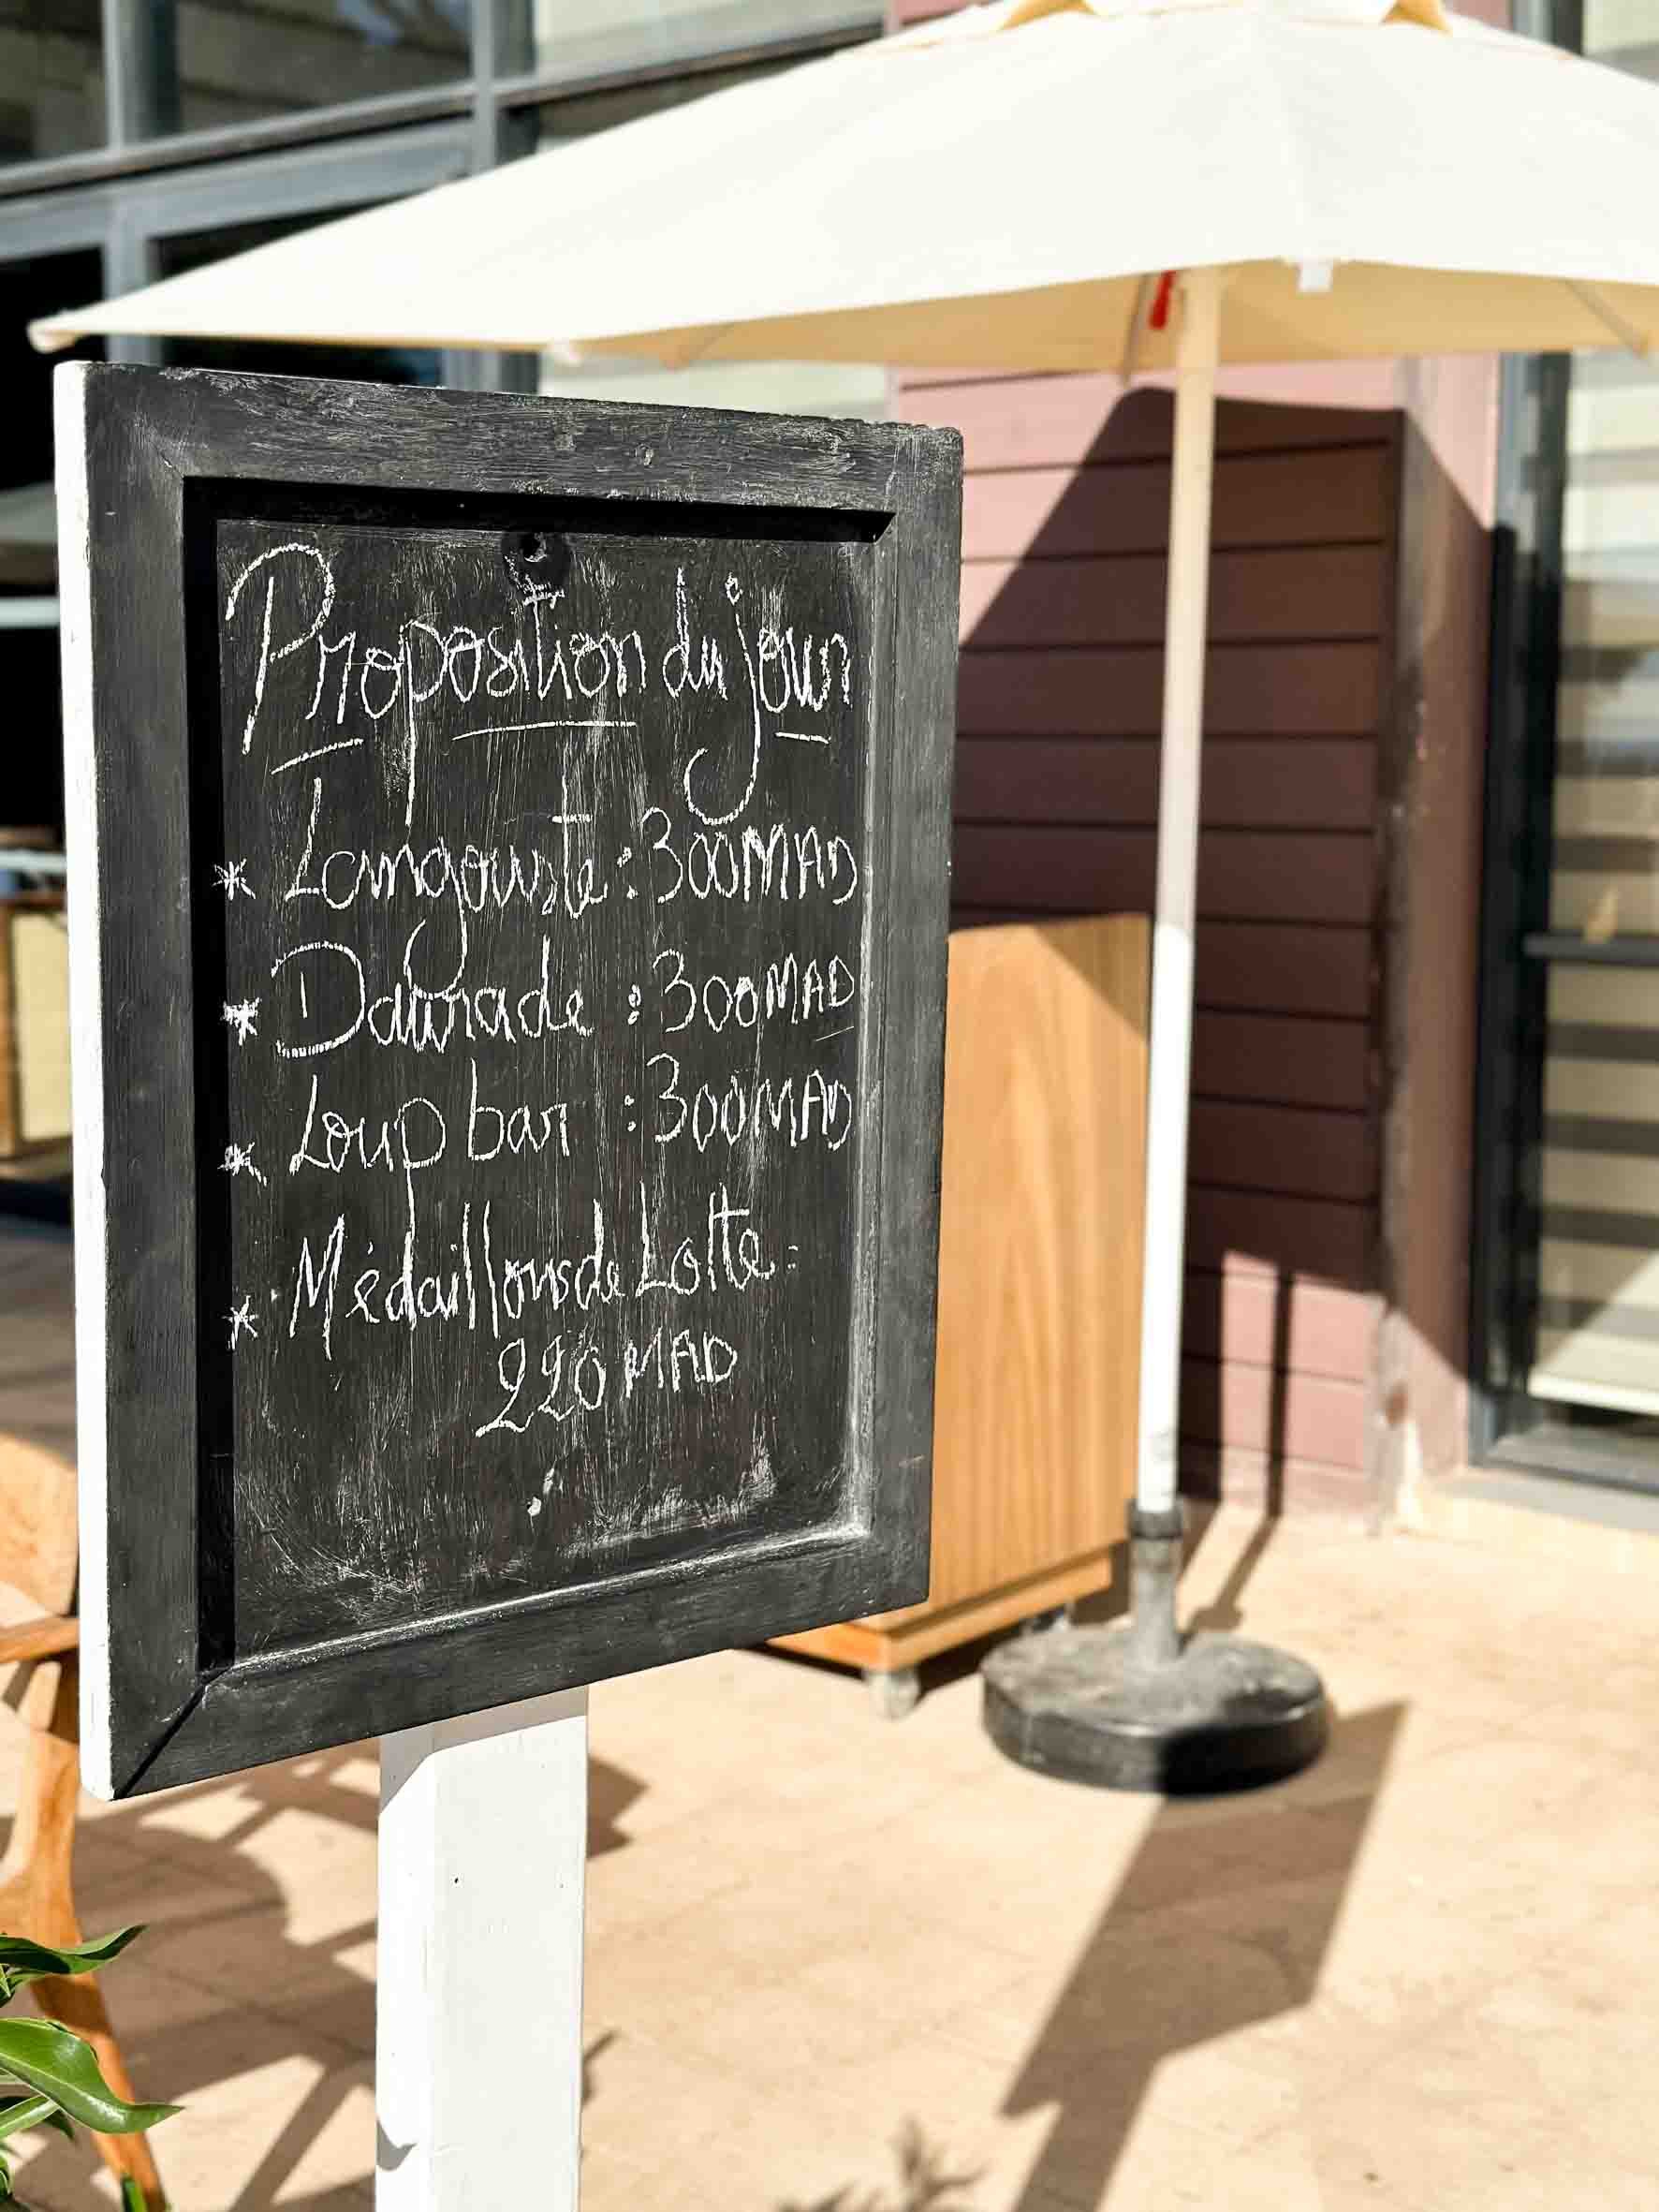 Proposition du jour
* Langouste : 300 MAD
* Daurade : 300 MAD
* Loup bar : 300 MAD
* Médaillons de Lotte :
220 MAD